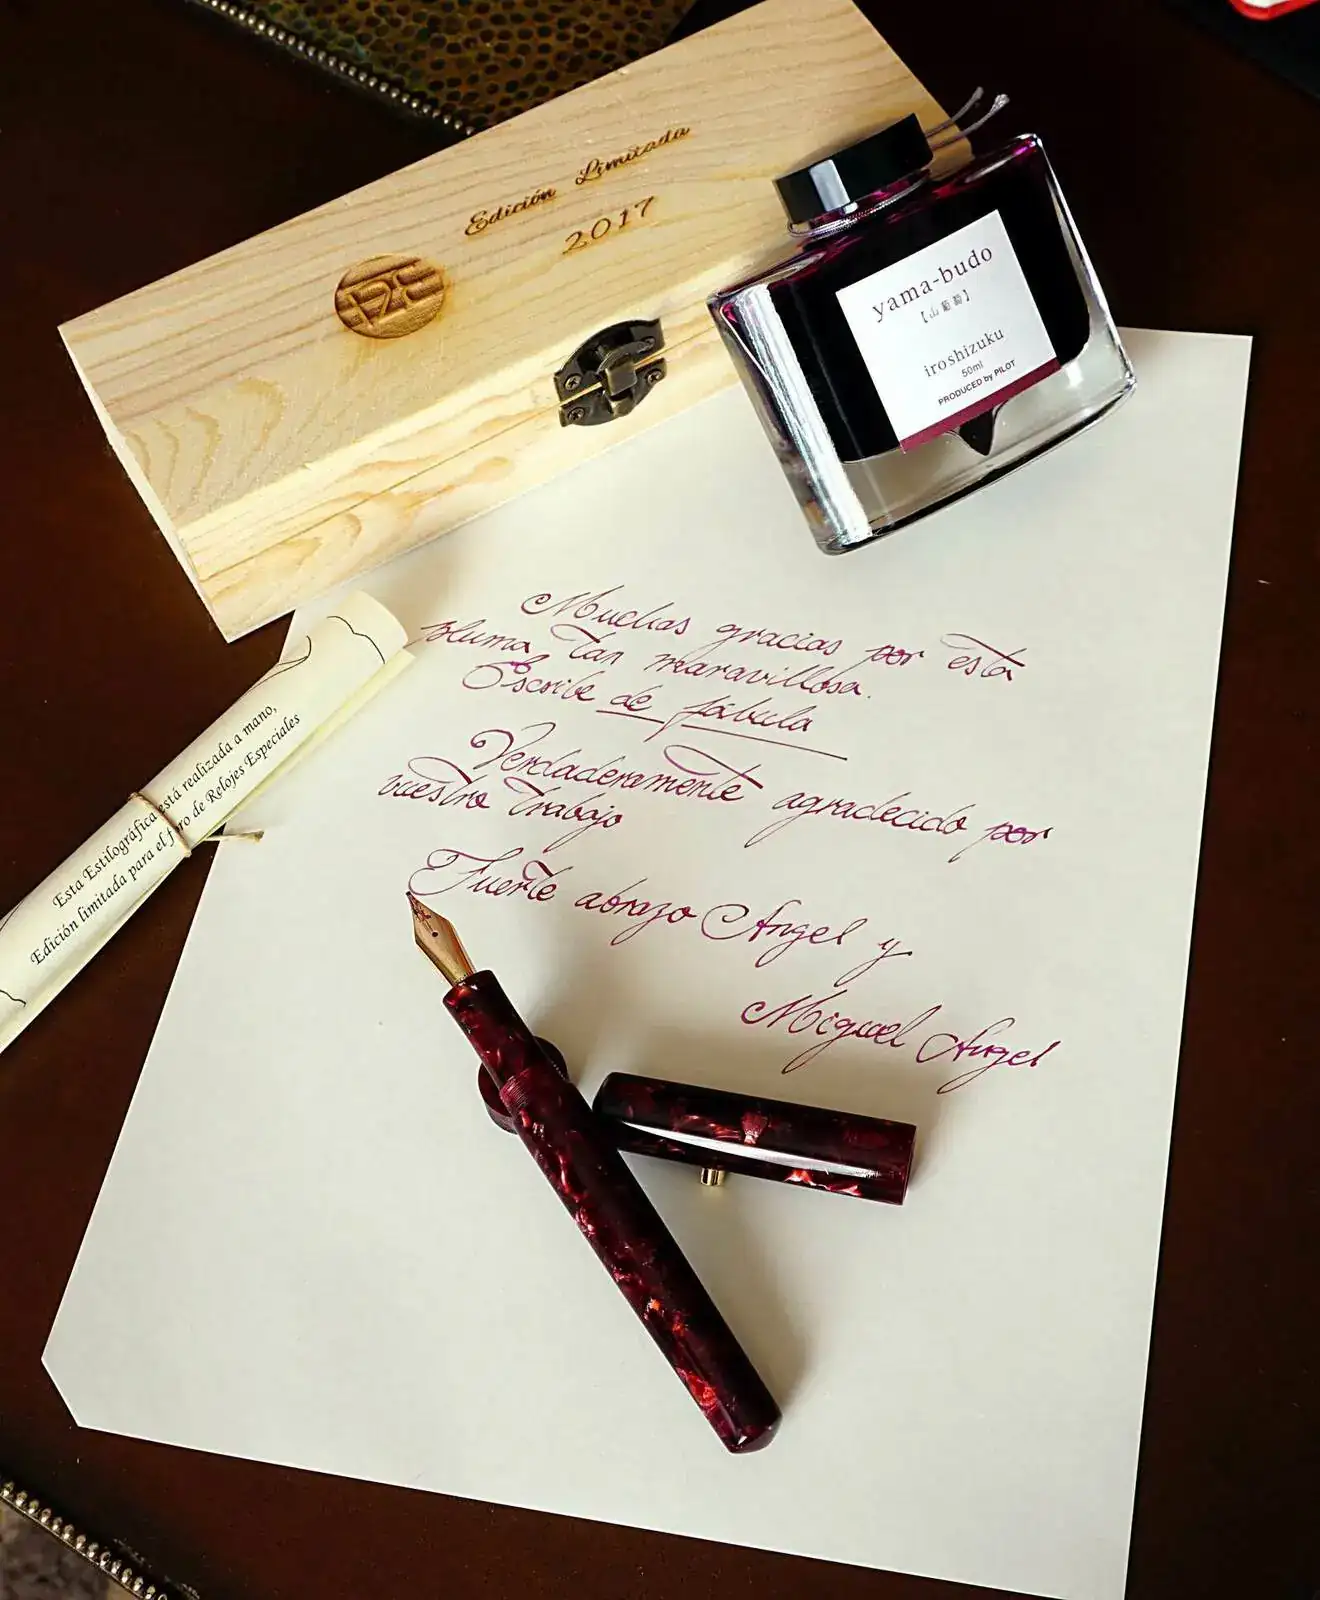 Edición Limitada
2017
yama-budo
【山葡萄】
iroshizuku
50ml
PRODUCED by PILOT
Muchas gracias por esta
pluma tan maravillosa.
Escribe de fabula
Verdaderamente agradecido por
vuestro trabajo
Fuerte abrazo Angel y
Miguel Angel
Esta Estilográfica está realizada a mano,
Edición limitada para el foro de Relojes Especiales